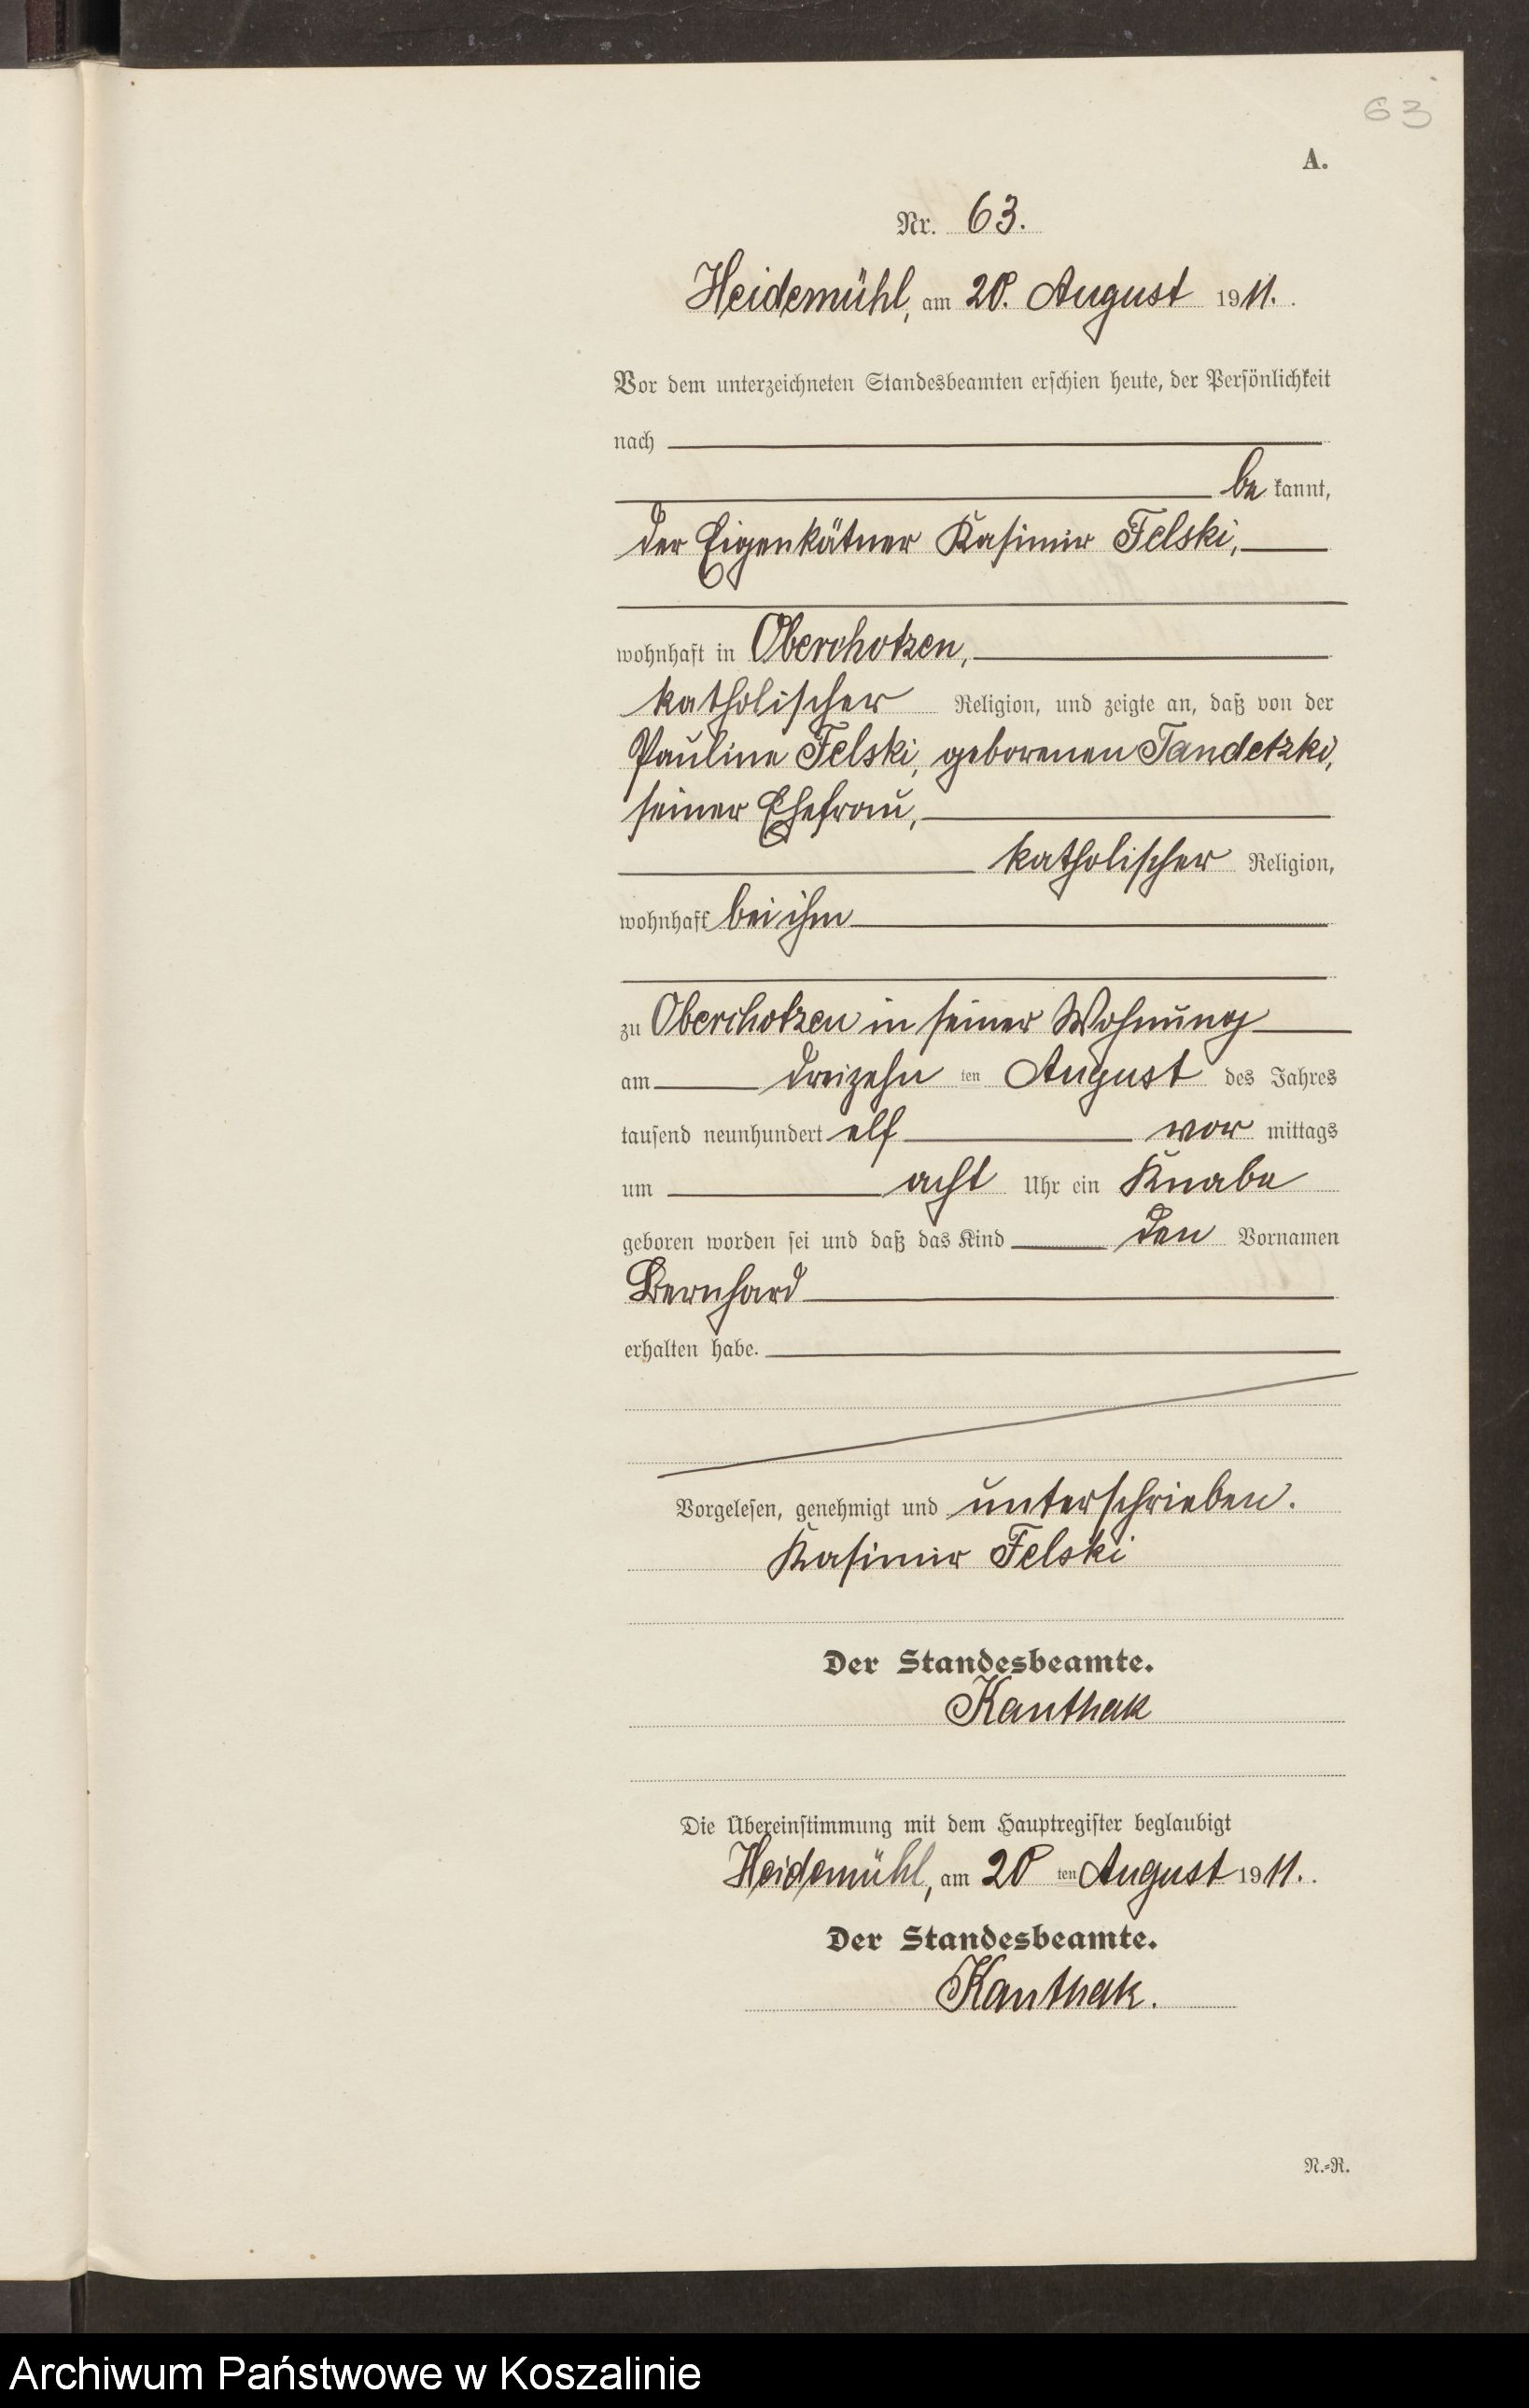 63
A.
Nr. 63.
Heidemühl, am 20. August 1911.
Vor dem unterzeichneten Standesbeamten erschien heute, der Persönlichkeit
nach
be kannt,
der Eigenkätner Kasimir Felski,
wohnhaft in Oberchotzen,
katholischer Religion, und zeigte an, daß von der
Pauline Felski, geborenen Tandetzki,
seiner Ehefrau,
katholischer Religion,
wohnhaft bei ihm
zu Oberchotzen in seiner Wohnung
am dreizehn ten August des Jahres
tausend neunhundert elf vor mittags
um acht Uhr ein Knabe
geboren worden sei und daß das Kind den Vornamen
Bernhard
erhalten habe.
Vorgelesen, genehmigt und unterschrieben.
Kasimir Felski
Der Standesbeamte.
Kanthak
Die Übereinstimmung mit dem Hauptregister beglaubigt
Heidemühl, am 20 ten August 1911.
Der Standesbeamte.
Kanthak.
N.-R.
Archiwum Państwowe w Koszalinie